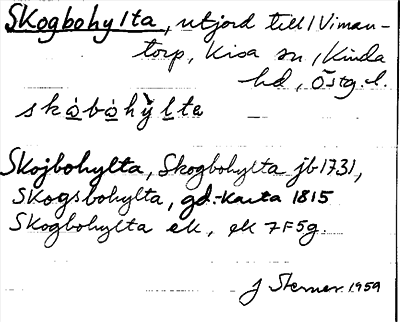 Skogbohylta, utjord till Viman-
torp, Kisa sn, Kinda
hd, Östg. l.
skòbòhỳlta
Skojbohylta, Skogbohylta jb 1731,
Skogsbohylta, gd.-karta 1815
Skogbohylta ek, ek 7F5g.
J Sterner 1959